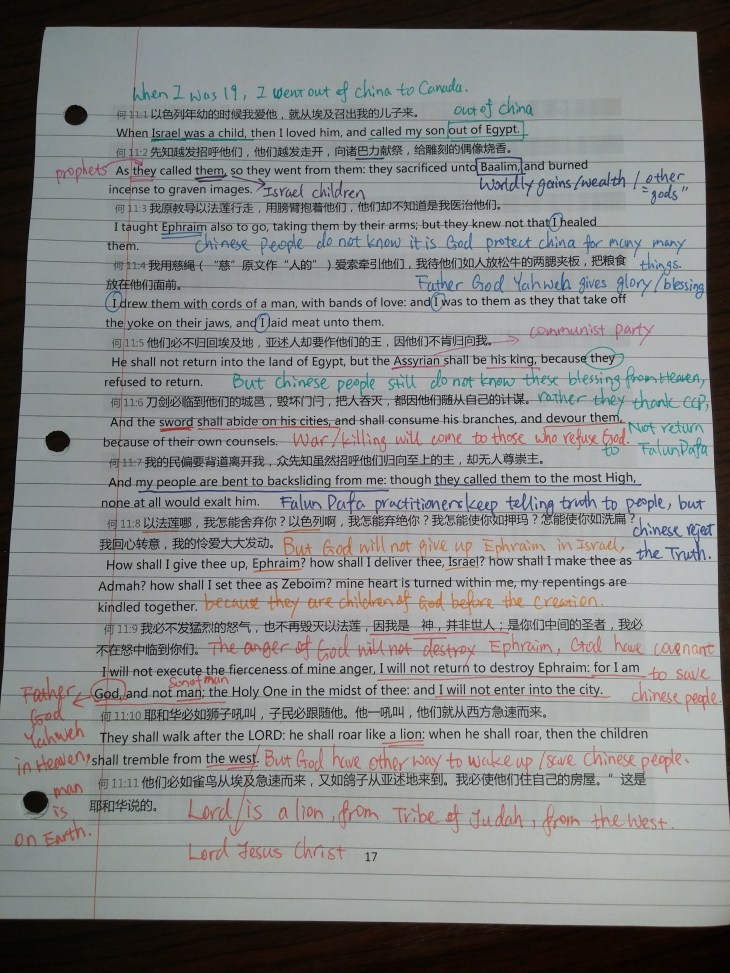 When I was 19, I went out of china to Canada.
何 11:1 以色列年幼的时候我爱他，就从埃及召出我的儿子来。 out of china
When Israel was a child, then I loved him, and called my son out of Egypt.
何 11:2 先知越发招呼他们，他们越发走开，向诸巴力献祭，给雕刻的偶像烧香。
prophets As they called them, so they went from them: they sacrificed unto Baalim, and burned
incense to graven images. Israel children Worldly gains/wealth / other "gods"
何 11:3 我原教导以法莲行走，用膀臂抱着他们，他们却不知道是我医治他们。
I taught Ephraim also to go, taking them by their arms; but they knew not that I healed
them. Chinese people do not know it is God protect china for many many things.
何 11:4 我用慈绳（“慈”原文作“人的”）爱索牵引他们，我待他们如人放松牛的两腮夹板，把粮食
放在他们面前。 Father God Yahweh gives glory/blessing
I drew them with cords of a man, with bands of love: and I was to them as they that take off
the yoke on their jaws, and I laid meat unto them.
何 11:5 他们必不归回埃及地，亚述人却要作他们的王，因他们不肯归向我。 communist party
He shall not return into the land of Egypt, but the Assyrian shall be his king, because they
refused to return. But Chinese people still do not know these blessing from Heaven,
何 11:6 刀剑必临到他们的城邑，毁坏门闩，把人吞灭，都因他们随从自己的计谋。 rather they thank CCP,
And the sword shall abide on his cities, and shall consume his branches, and devour them, Not return
because of their own counsels. War/killing will come to those who refuse God. to FalunDafa
何 11:7 我的民偏要背道离开我，众先知虽然招呼他们归向至上的主，却无人尊崇主。
And my people are bent to backsliding from me: though they called them to the most High,
none at all would exalt him. Falun Dafa practitioners keep telling truth to people, but
何 11:8 以法莲哪，我怎能舍弃你？以色列啊，我怎能弃绝你？我怎能使你如押玛？怎能使你如洗扁？ chinese reject
我回心转意，我的怜爱大大发动。 But God will not give up Ephraim in Israel, the Truth.
How shall I give thee up, Ephraim? how shall I deliver thee, Israel? how shall I make thee as
Admah? how shall I set thee as Zeboim? mine heart is turned within me, my repentings are
kindled together. because they are children of God before the creation.
何 11:9 我必不发猛烈的怒气，也不再毁灭以法莲，因我是 神，并非世人；是你们中间的圣者，我必
不在怒中临到你们。 The anger of God will not destroy Ephraim, God have covenant
I will not execute the fierceness of mine anger, I will not return to destroy Ephraim: for I am to save
Son of man
God, and not man; the Holy One in the midst of thee: and I will not enter into the city. chinese people.
Father God Yahweh in Heaven, man is on Earth.
何 11:10 耶和华必如狮子吼叫，子民必跟随他。他一吼叫，他们就从西方急速而来。
They shall walk after the LORD: he shall roar like a lion: when he shall roar, then the children
shall tremble from the west. But God have other way to wake up/save Chinese people.
何 11:11 他们必如雀鸟从埃及急速而来，又如鸽子从亚述地来到。我必使他们住自己的房屋。”这是
耶和华说的。
Lord is a lion, from Tribe of Judah, from the west.
Lord Jesus Christ
17